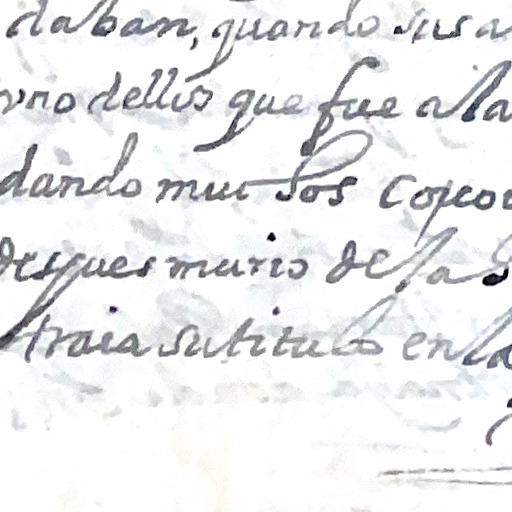 daban, quando sus a
vno dellos que fue a la
dando muchos coscor
despues murio de las
traia su titulo en la